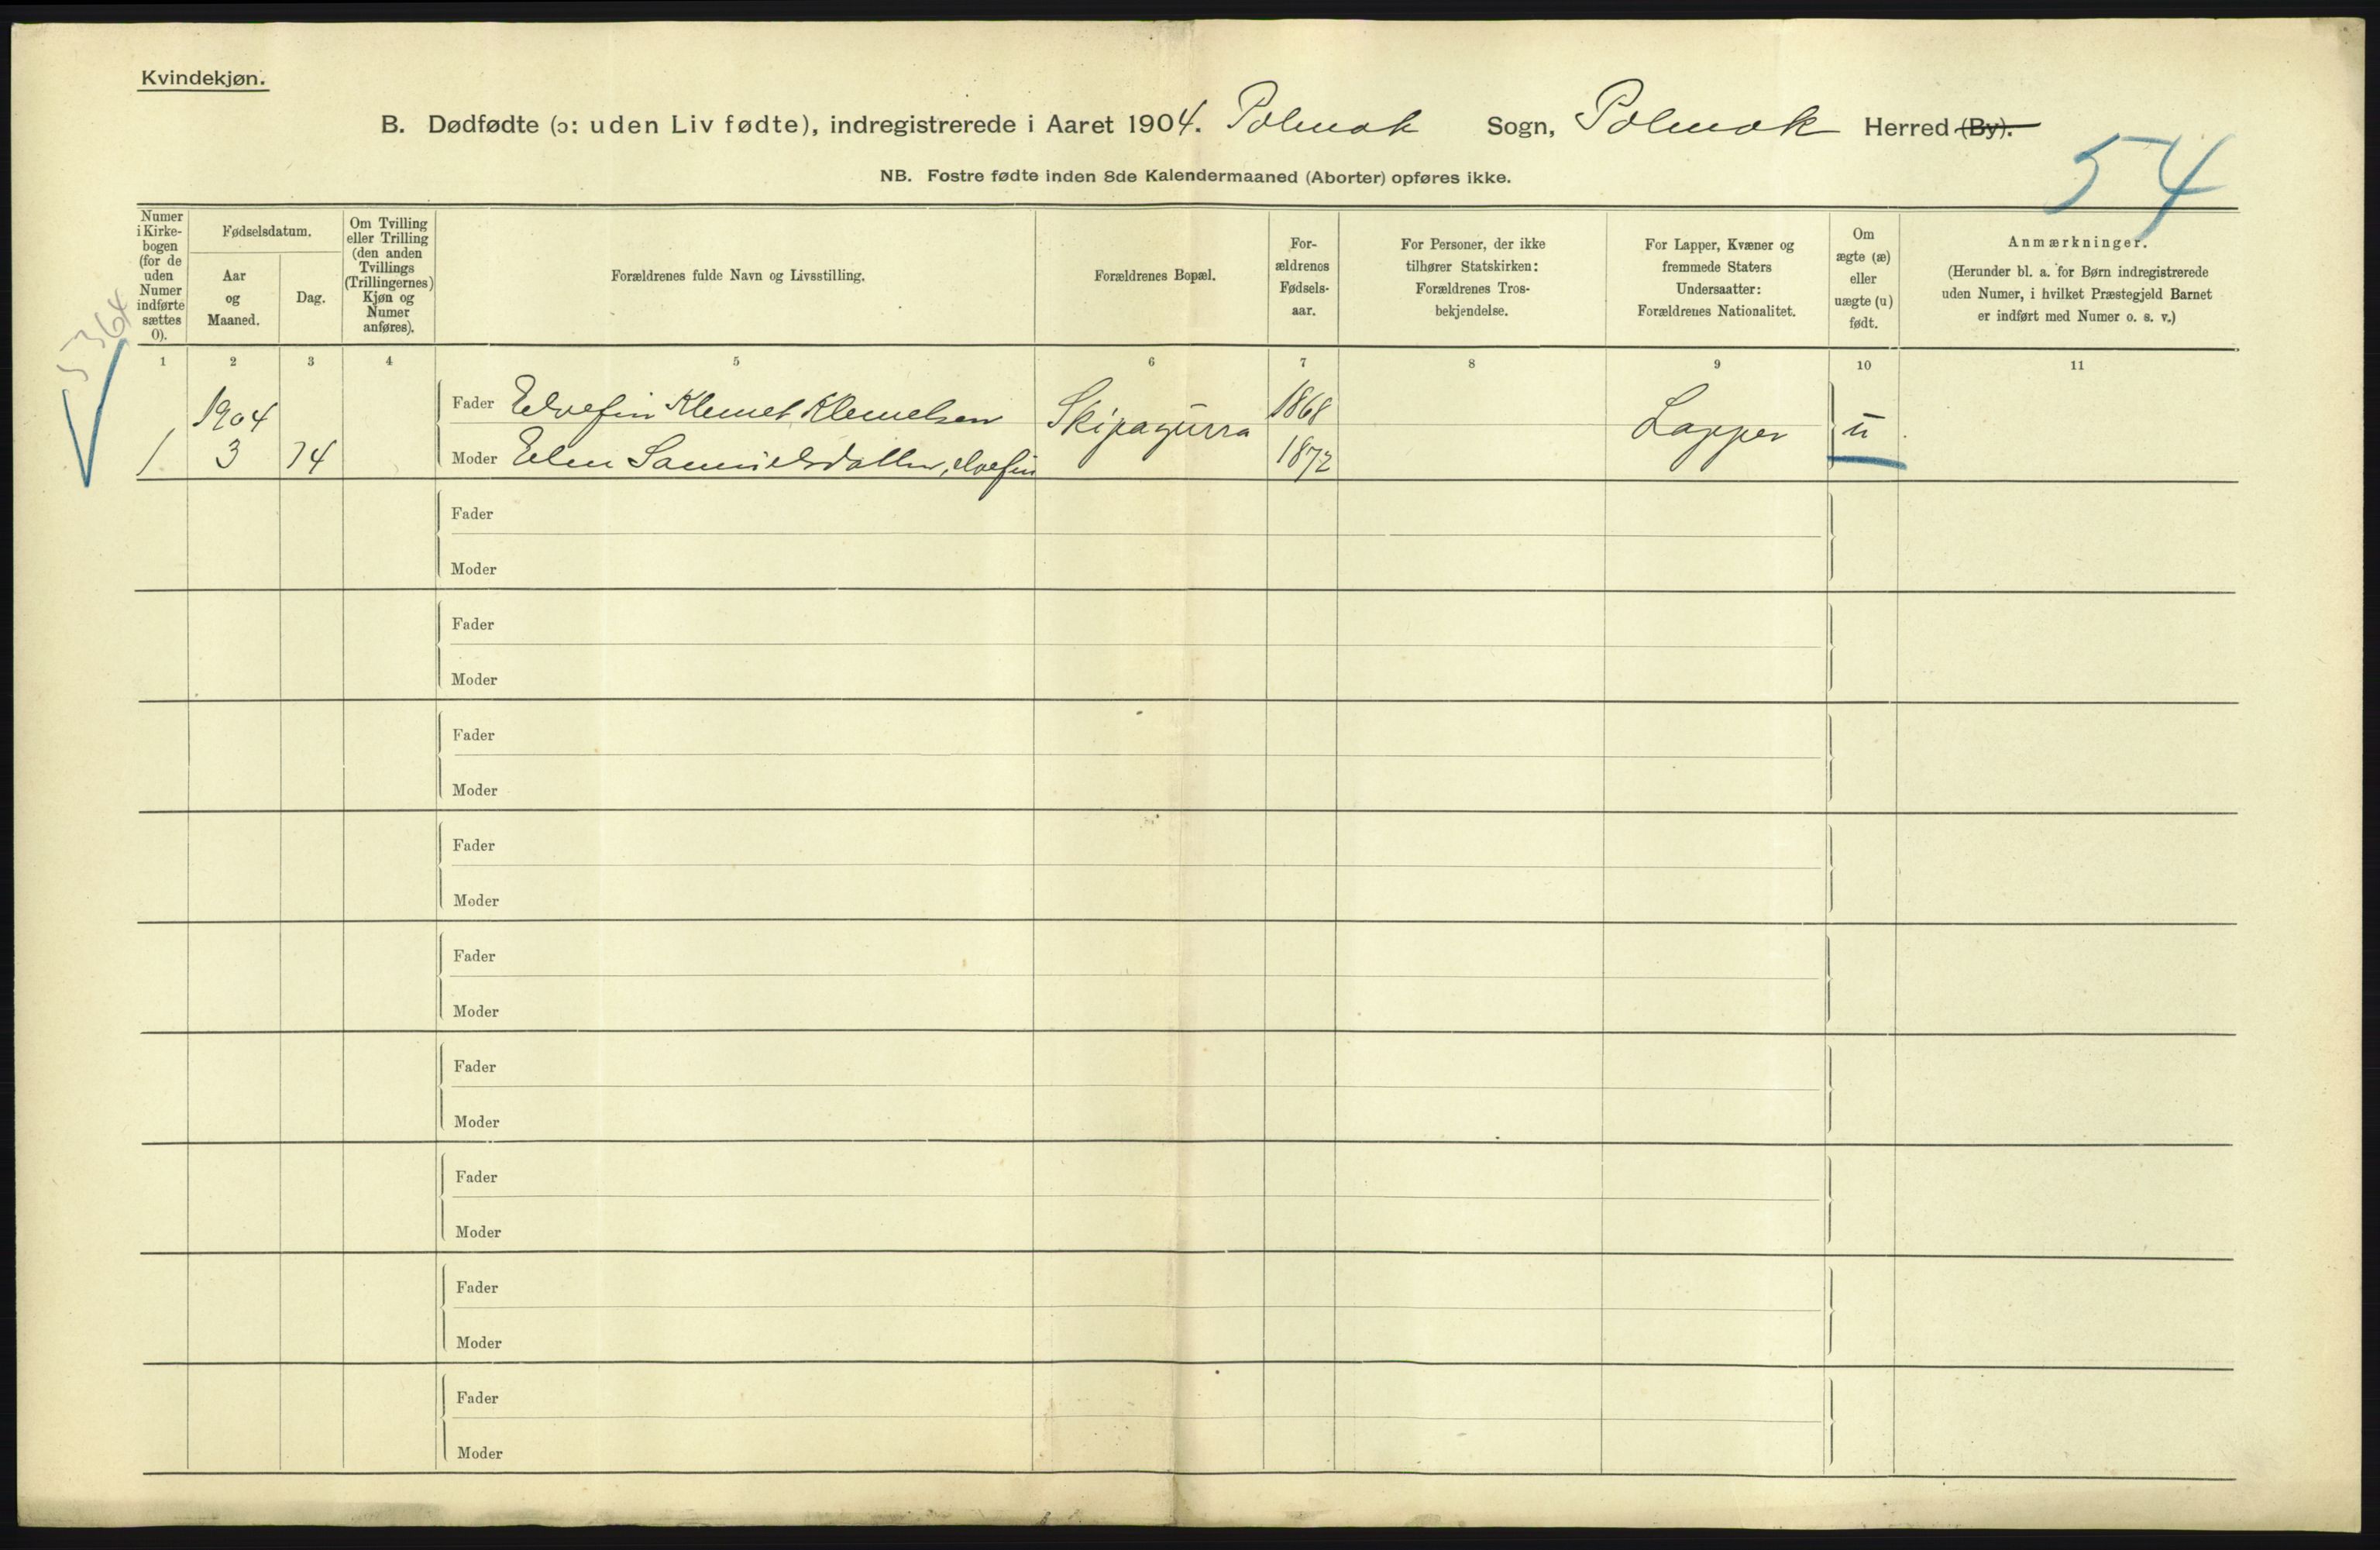 Kvindekjøn.
B. Dødfødte (ɔ: uden Liv fødte), indregistrerede i Aaret 1904. Polmak Sogn, Polmak Herred (By).
54
NB. Fostre fødte inden 8de Kalendermaaned (Aborter) opføres ikke.
Numer
i Kirke-
bogen
(for de
uden
Numer
indførte
sættes
0).
Fødselsdatum.
Aar
og
Maaned.
Dag.
Om Tvilling
eller Trilling
(den anden
Tvillings
(Trillingernes)
Kjøn og
Numer
anføres).
Forældrenes fulde Navn og Livsstilling.
Forældrenes Bopæl.
For-
ældrenes
Fødsels-
aar.
For Personer, der ikke
tilhører Statskirken:
Forældrenes Tros-
bekjendelse.
For Lapper, Kvæner og
fremmede Staters
Undersaatter:
Forældrenes Nationalitet.
Om
ægte (æ)
eller
uægte (u)
født.
Anmærkninger.
(Herunder bl. a. for Børn indregistrerede
uden Numer, i hvilket Præstegjeld Barnet
er indført med Numer o. s. v.)
5364
1 2 3 4 5 6 7 8 9 10 11
1904 Fader Elvefin Klemet Klemetsen Skipagurra 1868 Lapper u
1 3 14 Moder Elen Samuelsdatter, elvefin 1872
Fader
Moder
Fader
Moder
Fader
Moder
Fader
Moder
Fader
Moder
Fader
Moder
Fader
Moder
Fader
Moder
Fader
Moder